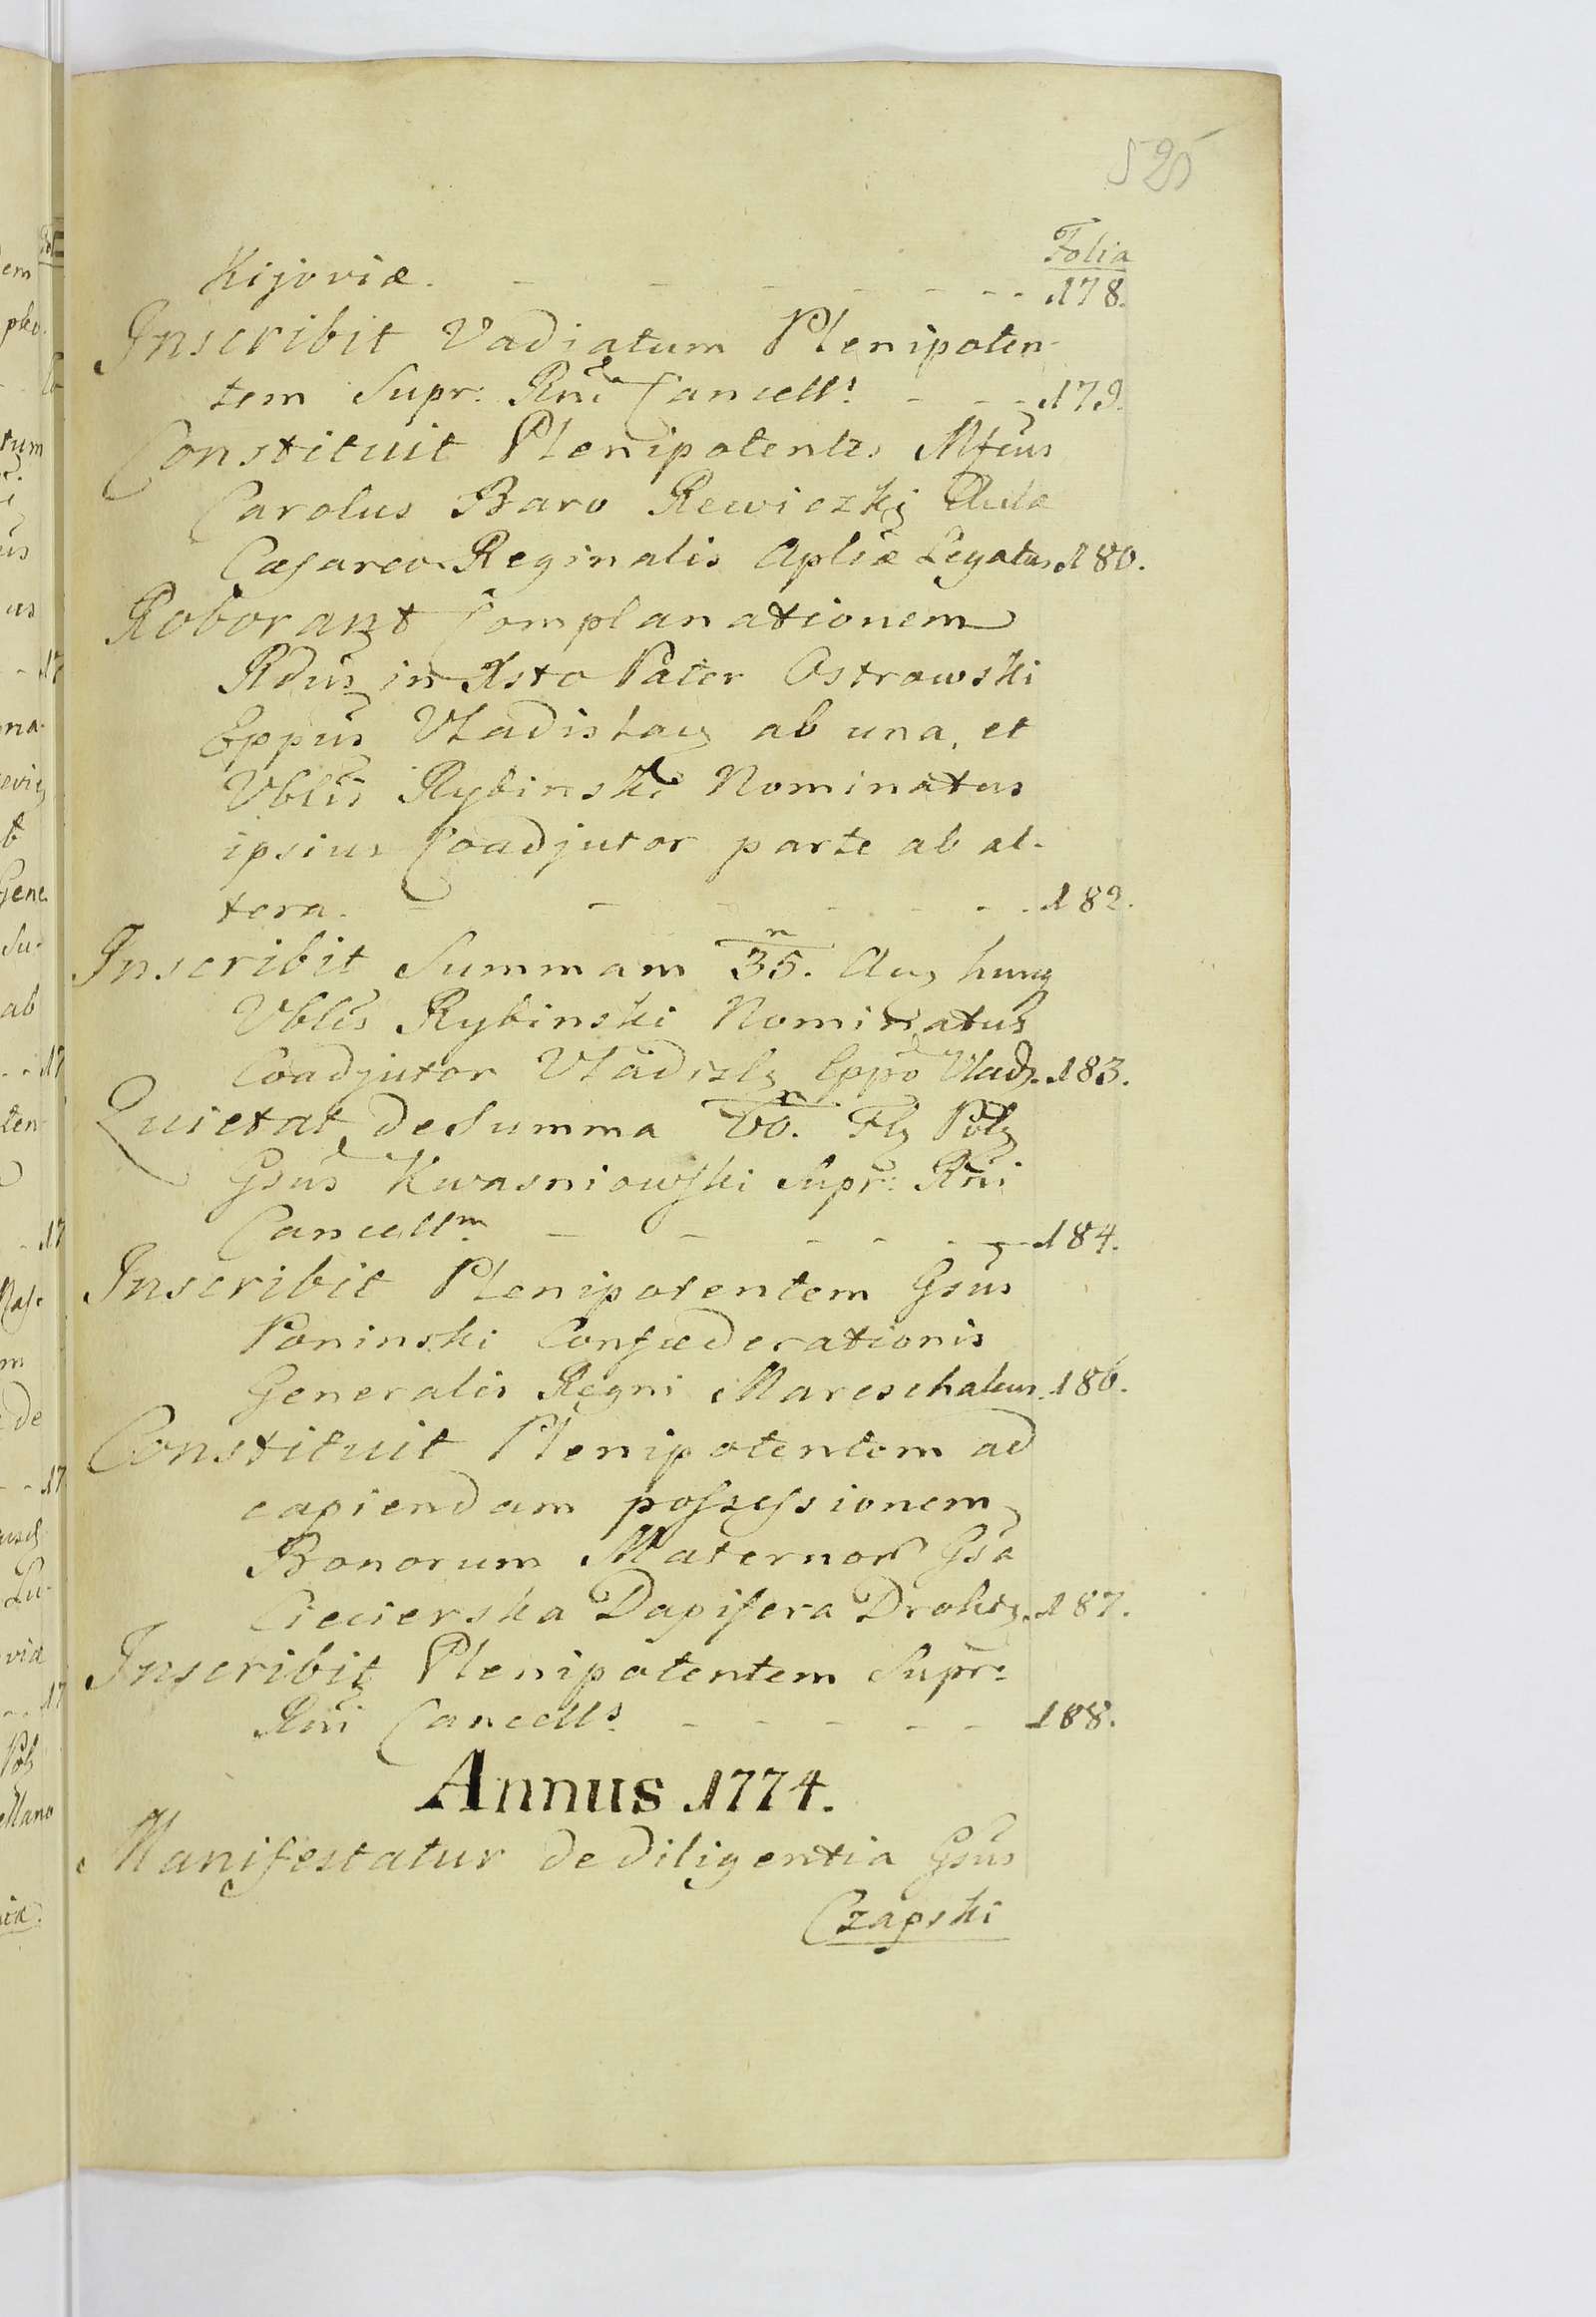 525
Folia
Kijoviæ. - - - - - - - 178.
Inscribit Vadiatum Plenipoten-
tem Supr: Rni Cancells. - - - 179.
Constituit Plenipotentes Mfcus
Carolus Baro Rewiczky Aulæ
Cæsareo Reginalis Apliæ Legatus. 180.
Roborant Complanationem
Rdus in Xsto Pater Ostrowski
Eppus Vladislaỹ ab una, et
Vblis Rybinski Nominatus
ipsius Coadjutor parte ab al-
tera. - - - - - - - 182.
Inscribit Summam 35. Auȝ hunȝ
Vblis Rybinski Nominatus
Coadjutor Vladislȝ Eppo Vladȝ. 183.
Quietat de Summa 60. Flȝ Polȝ
Gsus Kwasniowski Supr: Rni
Cancellm. - - - - - - 184.
Inscribit Plenipotentem Gsus
Poninski Confæderationis
Generalis Regni Mareschalcus. 186.
Constituit Plenipotentem ad
capiendam possessionem
Bonorum Maternor Gsa
Ciecierska Dapifera Drohȝ. 187.
Inscribit Plenipotentem Supr:
Rni Cancells. - - - - - 188.
Annus 1774.
Manifestatur de diligentia Gsus
Czapski